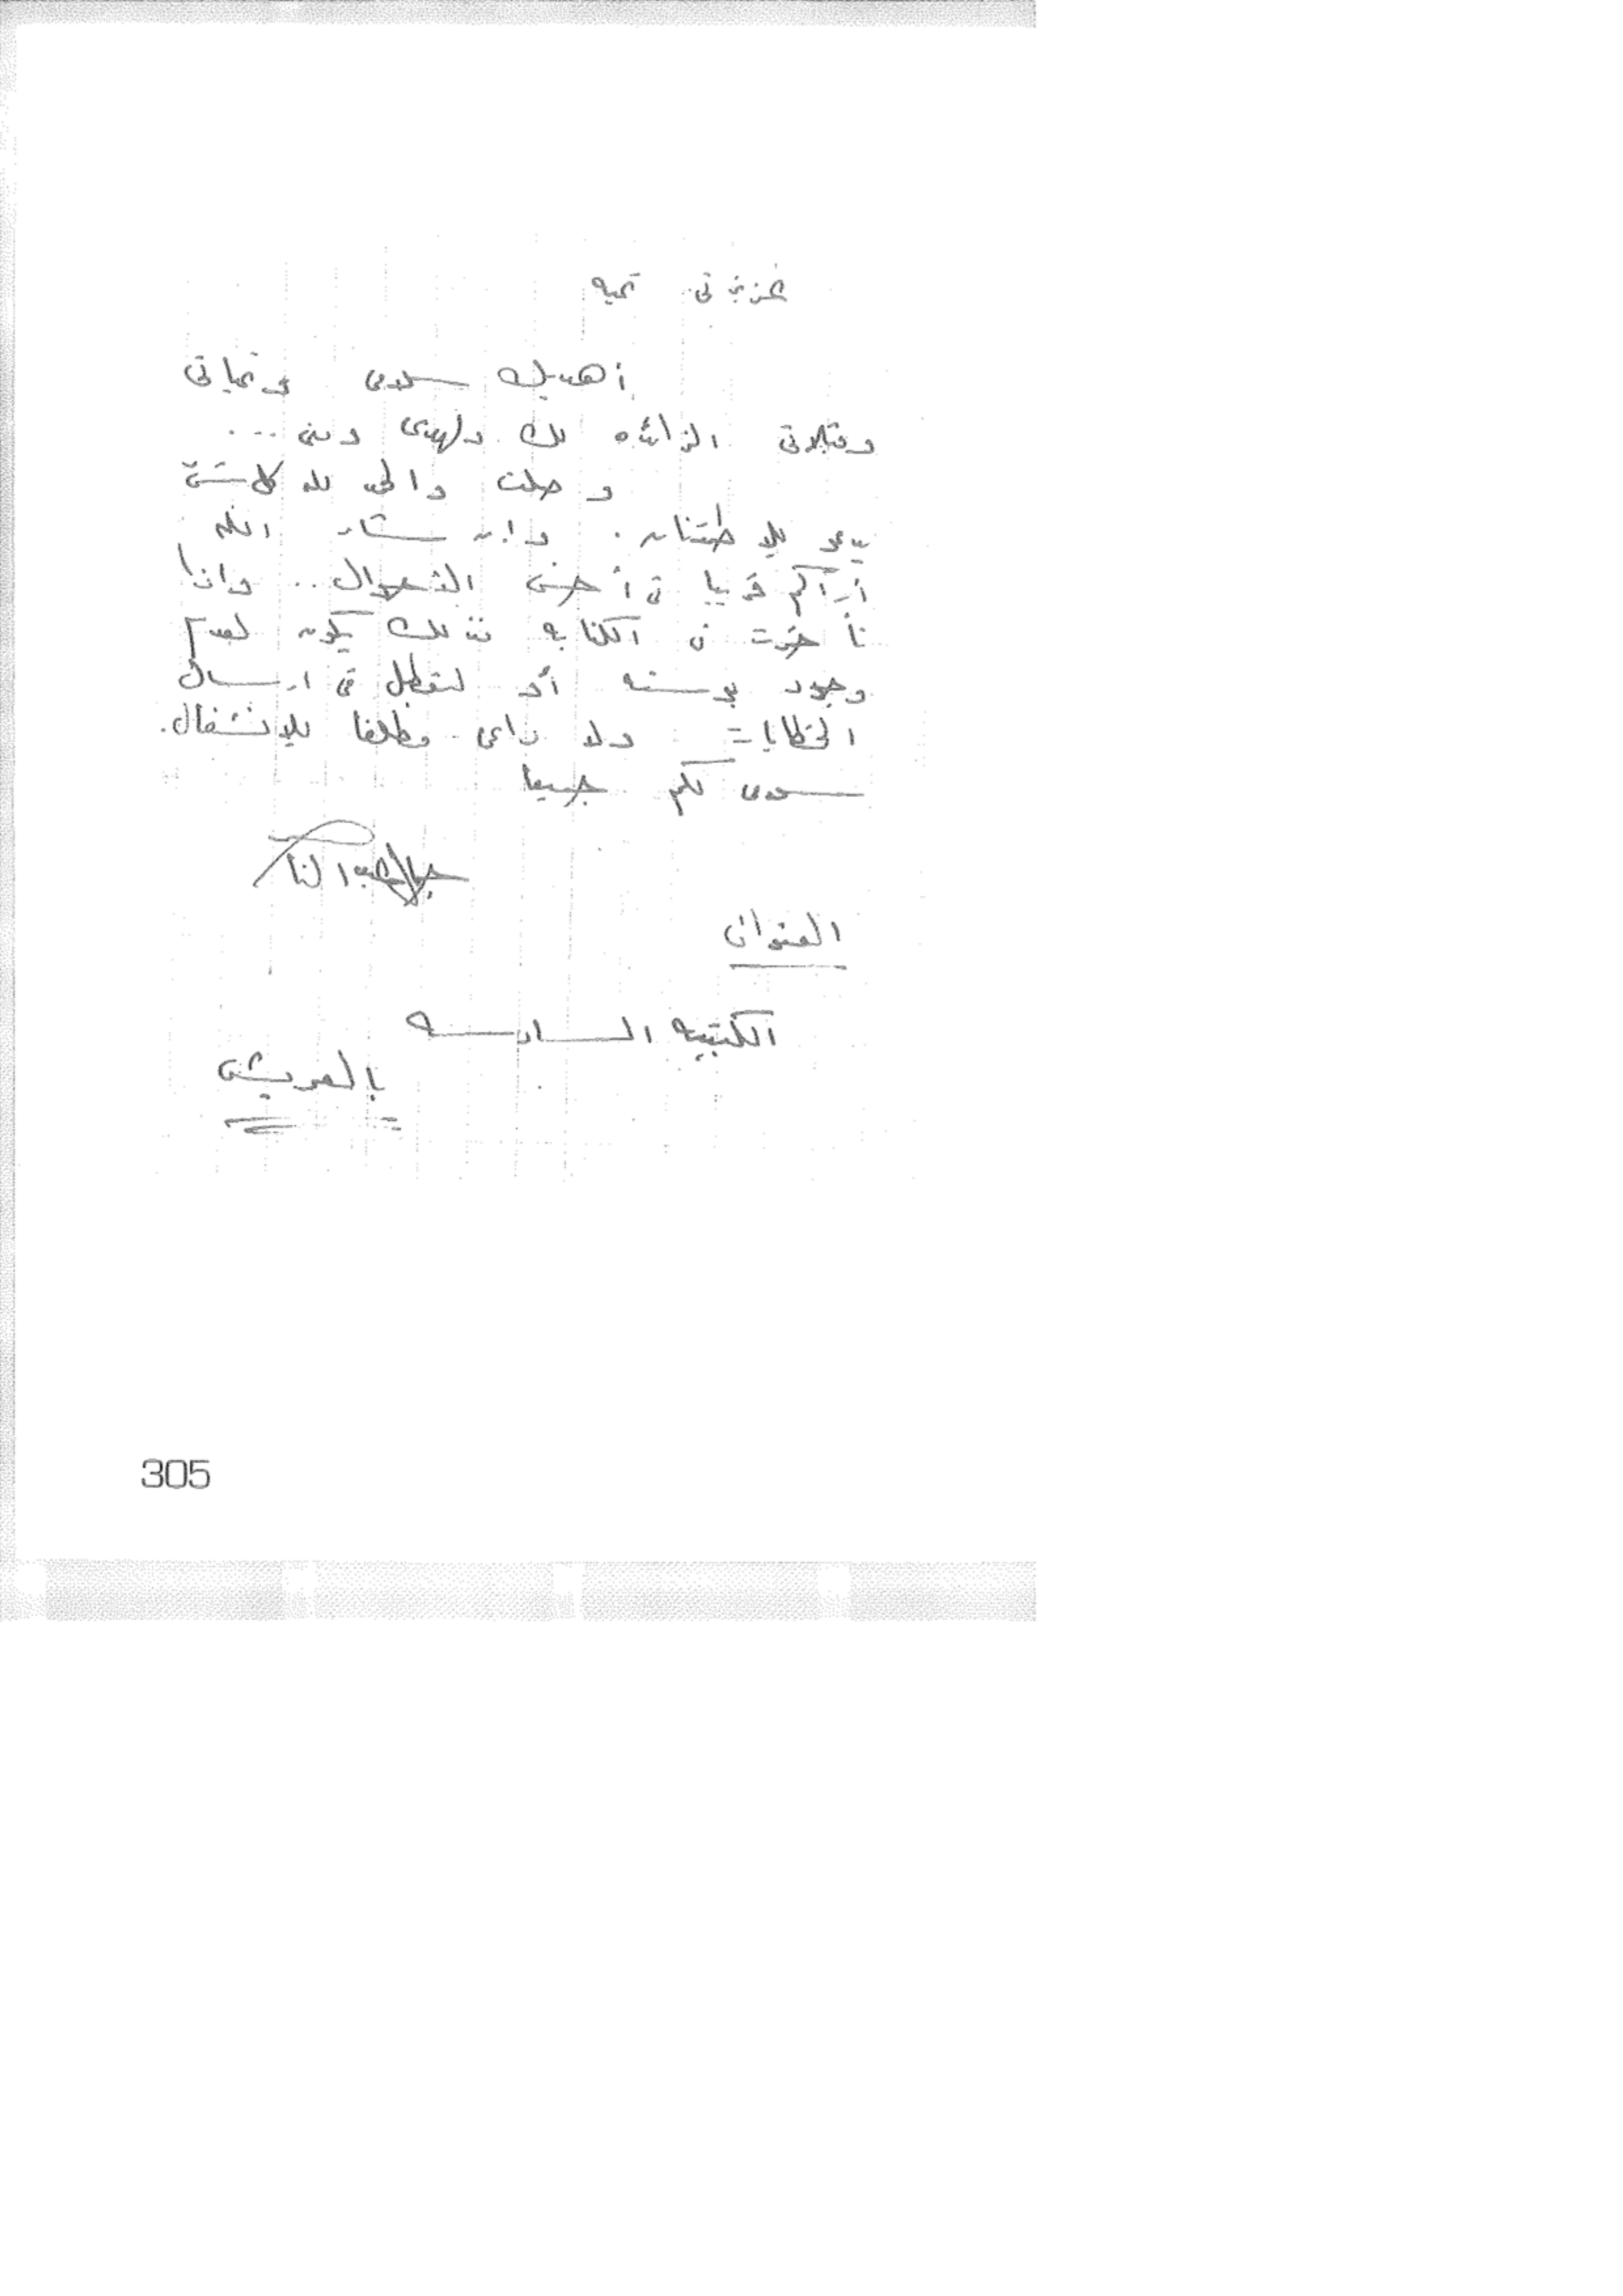 عزيزتى تحيه
أهديك سلامى وتحياتى
وقبلاتى الزائده لك ولهدى ومنى ...
وصلت والحمد لله كل شئ
يدعو للاطمئنان. وإن شاء الله
أراكم قريبا فى أحسن الأحوال .. واذا
تأخرت فى الكتابه فذلك يكون لعدم
وجود بوسته أو لتعطل فى ارسال
الخطابات ولا داعى مطلقا للانشغال.
سلامى لكم جميعا
جمال عبد الناصر
العنوان
الكتيبه السادسه
بالعريش
305